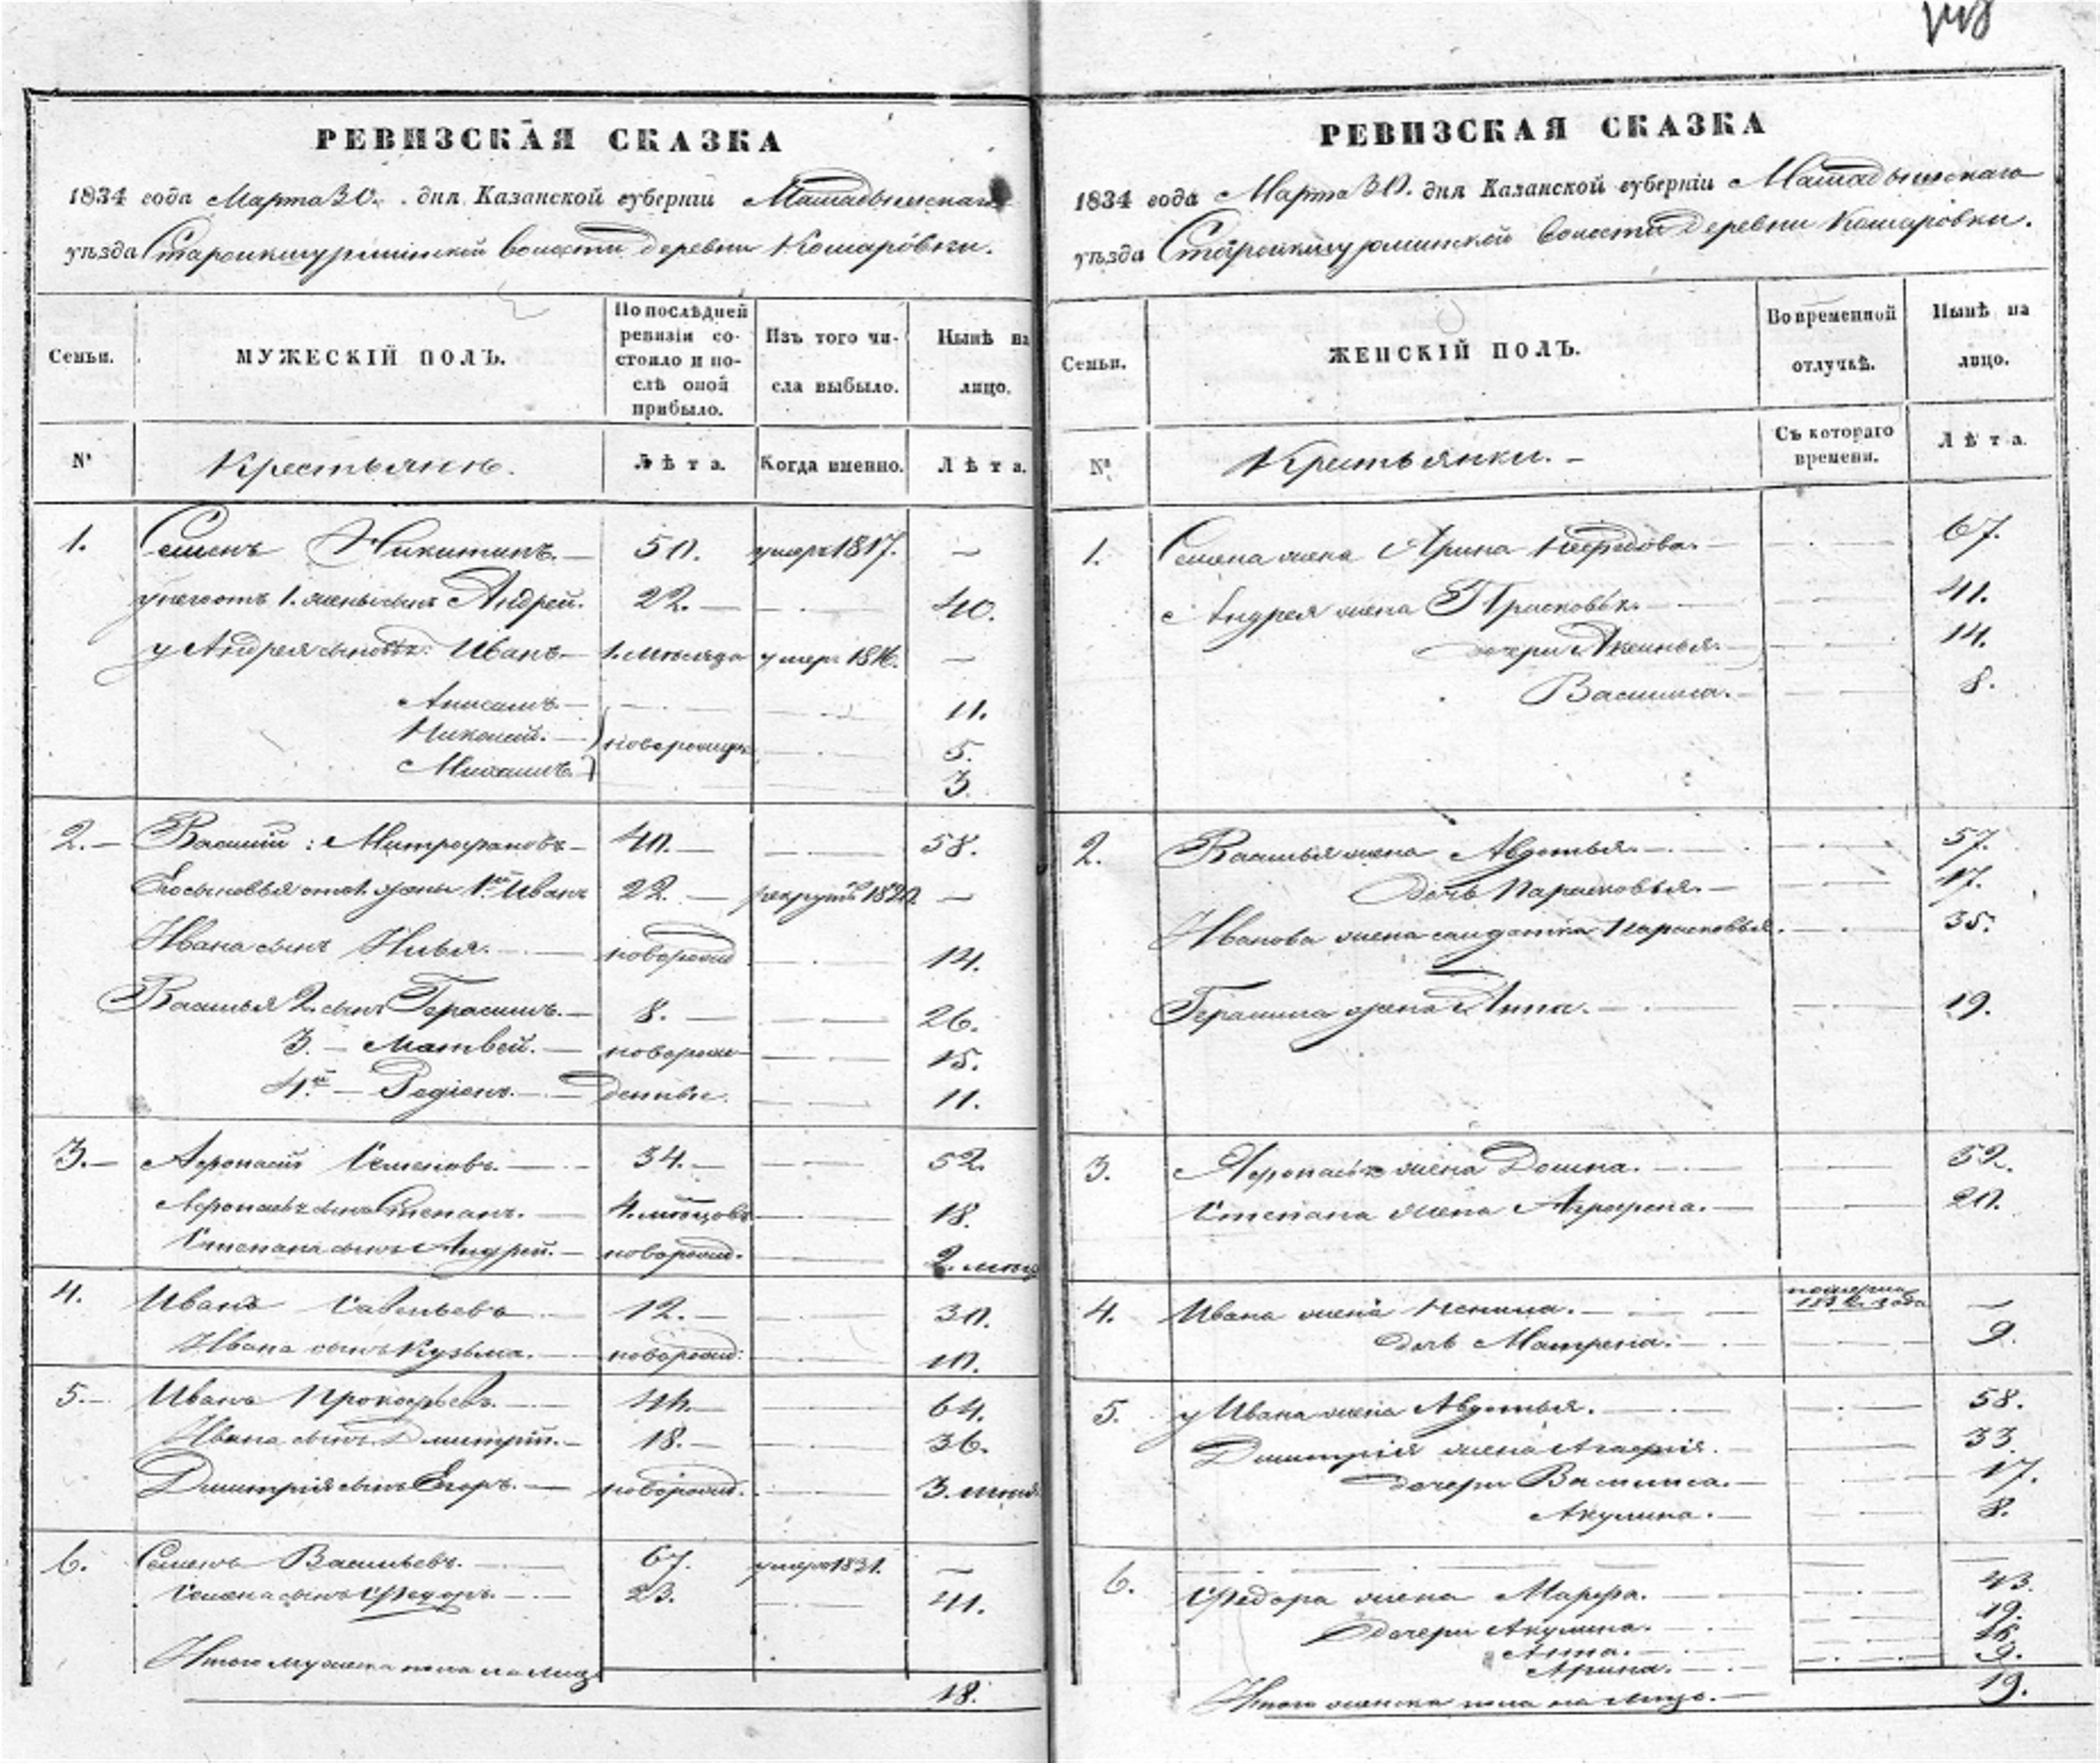 РЕВИЗСКАЯ СКАЗКА
1834 года Марта 30. дня Казанской губерніи Мамадышскаго
уѣзда Староикшурминской волости деревни Комаровки.
Семьи.
МУЖЕСКІЙ ПОЛЪ.
По послѣдней
ревизіи со-
стояло и по-
слѣ оной
прибыло.
Изъ того чи-
сла выбыло.
Нынѣ на
лицо.
№
Крестьяне.
Лѣта.
Когда именно.
Лѣта.
1. Семенъ Никитинъ. 50. умеръ 1817. —
у него отъ 1. жены сынъ Андрей. 22. — 40.
у Андрея сыновья: Иванъ — 1. мѣсяца умеръ 1816. —
Анисимъ. — 11.
Николай. — новорожд 5.
Михаилъ. 3.
2. — Василій Митрофановъ — 40. — 58.
Его сыновья отъ 1. жены 1й Иванъ 22. — рекрутъ 1820 —
Ивана сынъ Илья. новорожд 14.
Василья 2. сынъ Герасимъ. — 8. — 26.
3. — Матвей. — новорож 15.
4й — Родіонъ. — 11.
3. — Афонасій Семеновъ. — 34. — 52.
Афонасья сынъ Степанъ. — 4. мѣсяцовъ 18.
Степана сынъ Андрей. — новорожд. 2. мѣся
4. Иванъ Савельевъ 12. — 30.
Ивана сынъ Кузьма. новорожд: 10.
5. — Иванъ Прокофьевъ. 46. — 64.
Ивана сынъ Дмитрій. — 18. — 36.
Дмитрія сынъ Егоръ. — новорожд. 3. мѣсяц
6. Семенъ Васильевъ. 67. умеръ 1831. —
Семена сынъ Федоръ. 23. 41.
Итого мужеска пола на лицо
18.
РЕВИЗСКАЯ СКАЗКА
1834 года Марта 30. дня Казанской губерніи Мамадышскаго
уѣзда Староикшурминской волости деревни Комаровки.
Семьи.
ЖЕНСКІЙ ПОЛЪ.
Во временной
отлучкѣ.
Нынѣ на
лицо.
№
Крестьянки. —
Съ котораго
времени.
Лѣта.
1. Семена жена Арина 67.
Андрея жена Прасковья. 41.
дочери Аксинья. 14.
Василиса. 8.
2. Василья жена Авдотья. 57.
дочь Парасковья. — 17.
Иванова жена салдатка Парасковья. 35.
Герасима жена Анна. 19.
3. Афонасья жена Домна. 52.
Степана жена Аграфена. — 20.
4. Ивана жена Ненила. померла —
дочь Матрена. 9.
5. у Ивана жена Авдотья. 58.
Дмитрія жена 33.
дочери Василиса. — 17.
Акулина. — 8.
6.
Федора жена Марфа. 43.
дочери Акулина. 19.
Анна. 16.
Арина. 9.
Итого женска пола на лицо. —
19.